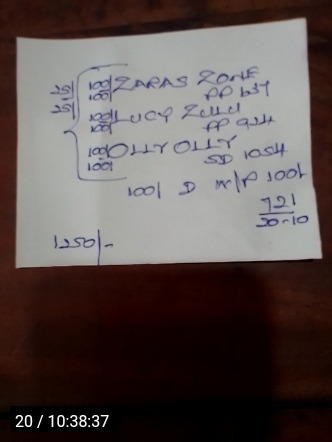 75/ 75/
100/ 100/ ZARAS ZONE
PP 637
100/ 100/ LUCY ZULU
PP 924
100/ 100/ OLLY OLLY
SD 1054
100/ D M/P 100/
721
20-10
1250/-
20 / 10:38:37